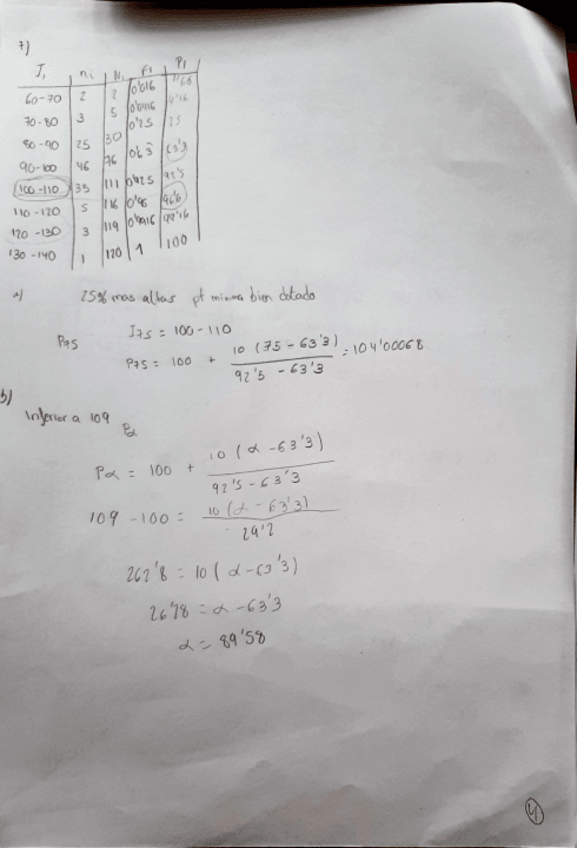 7)
I, ni Ni Fi Pi
60-70 2 2 0'016 1'66
70-80 3 5 0'0416 4'16
80-90 25 30 0'25 25
90-100 46 76 0'63 63'3
100-110 35 111 0'925 92'5
110-120 5 116 0'96 96'6
120-130 3 119 0'9916 99'16
130-140 1 120 1 100
a) 25% mas altas pt minima bien dotado
P75 I75 = 100-110
P75 = 100 + 10 (75-63'3) / 92'5 - 63'3 = 104'00068
b) Inferior a 109
Pα
Pα = 100 + 10 (α -63'3) / 92'5-63'3
109 -100 = 10 (α - 63'3) / 29'2
262'8 = 10 ( α -63'3)
26'28 = α -63'3
α = 89'58